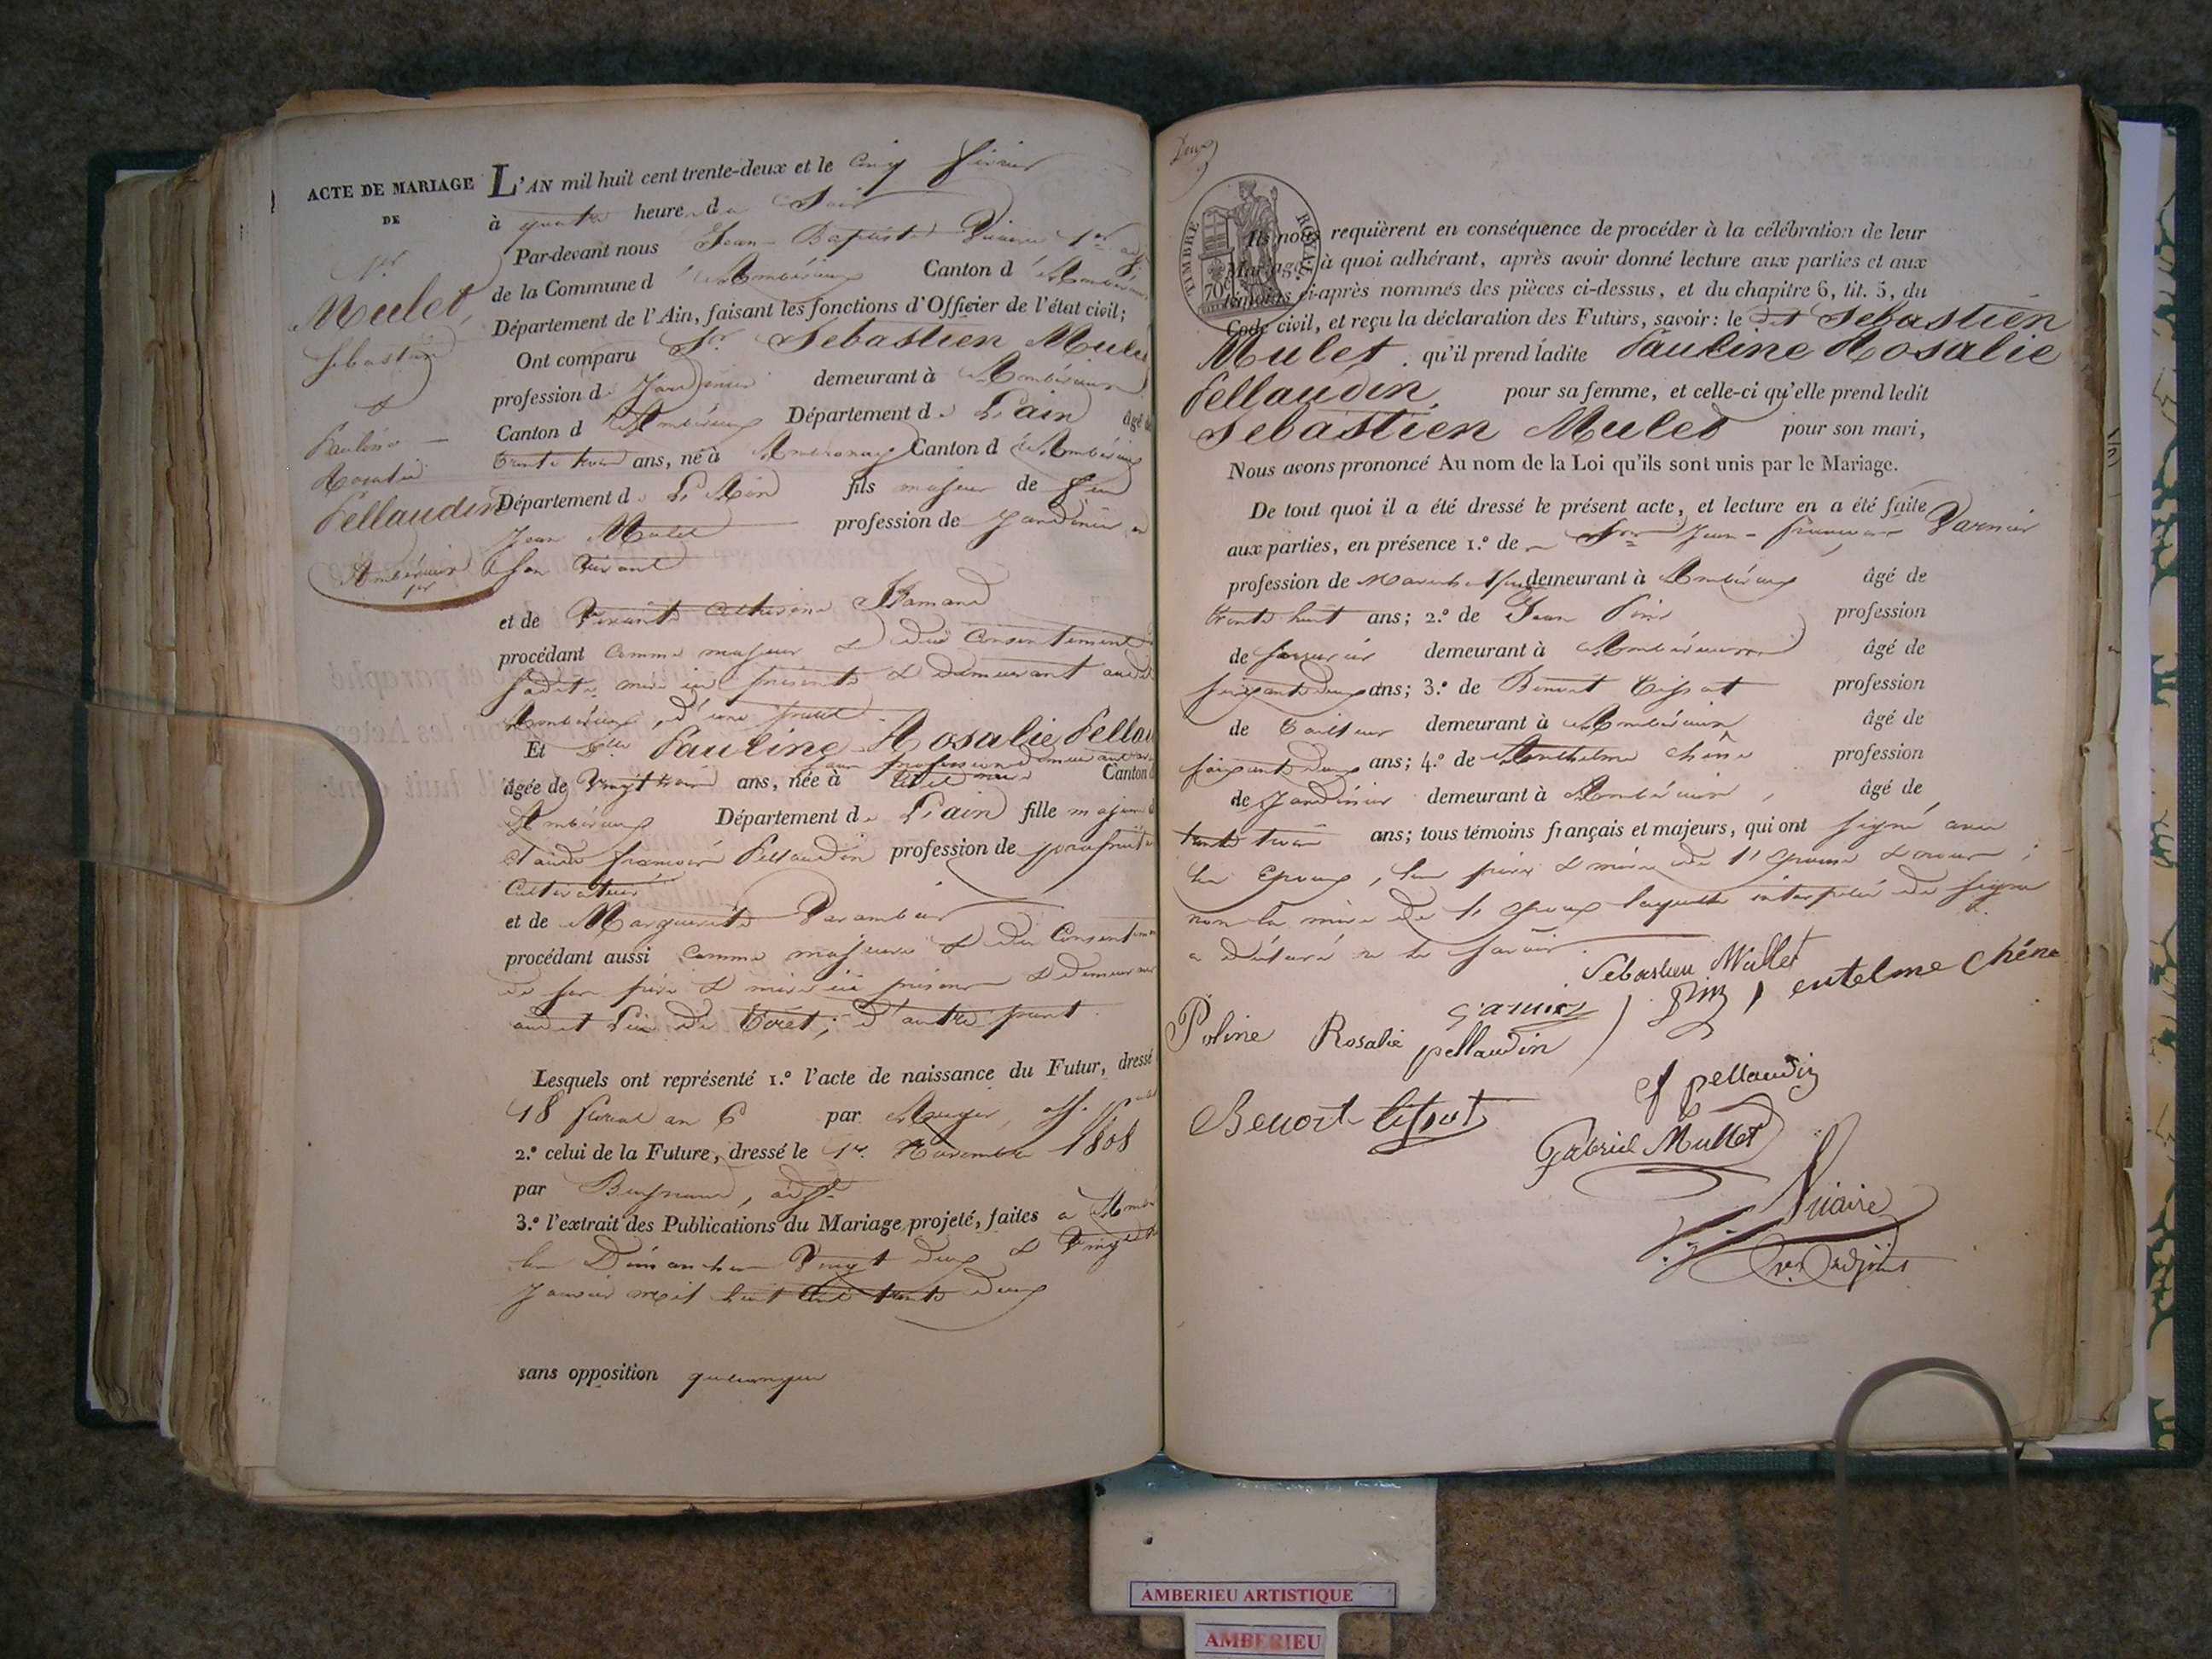 ACTE DE MARIAGE
DE
Mulet,
Sebastien
et
Pauline
Rosalie
Pellaudin
Ambérieux
L'AN mil huit cent trente-deux et le cinq février
à quatre heure du Soir
Par-devant nous Jean-Baptiste Viaire 1er adj
de la Commune d'Ambérieux Canton d'Ambérieux
Département de l'Ain, faisant les fonctions d'Officier de l'état civil;
Ont comparu Sr. Sebastien Mulet
profession de Jardinier demeurant à Ambérieux
Canton d'Ambérieux Département de L'ain âgé de
trente trois ans, né à Ambronay Canton d'Ambérieux
Département de L'Ain fils majeur de feu
Jean Mulet profession de Jardinier en
Son vivant
et de Vivante Catherine
procédant comme majeur & du Consentement de
sadite mère ici présente & demeurant audit
Ambérieux, d'une part.
Et Dlle Pauline Rosalie Pellau
sans profession demeurant au
âgée de vingt trois ans, née à Canton d
Ambérieux Département de L'ain fille majeure d
Claude françois Pellaudin profession de propriétaire
Cultivateur
et de Marguerite Varambier
procédant aussi comme majeure & du Consentement
de ses père & mère ici présens & demeurant
audit lieu de Tiret; d'autre part.
Lesquels ont représenté 1.º l'acte de naissance du Futur, dressé
18 floréal an 6 par off. pub
2.º celui de la Future, dressé le 1er. Novembre 1808
par adj.
3.º l'extrait des Publications du Mariage projeté, faites a Ambé
les Dimanches Vingt deux & Vingt
Janvier mil huit Cent trente deux
sans opposition quelconque
Deux
TIMBRE ROYAL
70c
Ils nous requièrent en conséquence de procéder à la célébration de leur
Mariage; à quoi adhérant, après avoir donné lecture aux parties et aux
témoins ci-après nommés des pièces ci-dessus, et du chapitre 6, tit. 5, du
Code civil, et reçu la déclaration des Futurs, savoir: le dit Sebastien
Mulet qu'il prend ladite Pauline Rosalie
Pellaudin, pour sa femme, et celle-ci qu'elle prend ledit
Sebastien Mulet pour son mari,
Nous avons prononcé Au nom de la Loi qu'ils sont unis par le Mariage.
De tout quoi il a été dressé le présent acte, et lecture en a été faite
aux parties, en présence 1.º de Sr Jean-françois Garnier
profession de demeurant à Ambérieux âgé de
trente huit ans; 2.º de Jean Pin profession
de Serrurier demeurant à Ambérieux âgé de
soixante deux ans; 3.º de Benoit Tissot profession
de Tailleur demeurant à Ambérieux âgé de
soixante deux ans; 4.º de Anthelme Chêne profession
de Jardinier demeurant à Ambérieux, âgé de
trente trois ans; tous témoins français et majeurs, qui ont signé avec
les Epoux, les père & mère de l'Epouse & nous;
non la mère de l'Epoux laquelle interpelée de signer
a déclaré ne le savoir.
Sebastien Mullet
Garnier
Pin
entelme Chêne
Poline Rosalie pellaudin
f pellaudin
Benoit tissot
Gabriel Mullet
Viaire
1er adjoint
AMBERIEU ARTISTIQUE
AMBERIEU